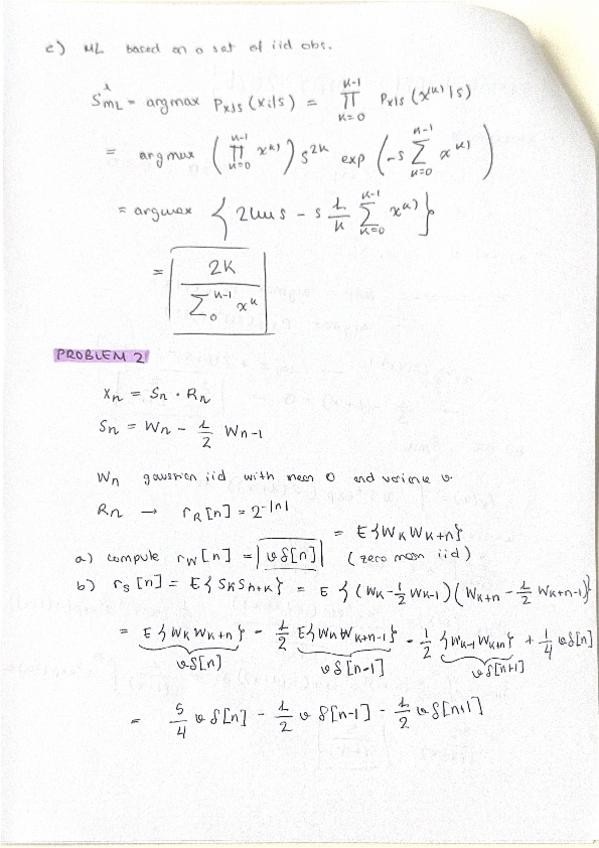 c) ML based on a set of iid obs.
ŝ_ML = argmax P_x|s (x|s) = ∏_{k=0}^{K-1} P_x|s (x^(k)|s)
= argmax (∏_{k=0}^{K-1} x^(k)) s^{2K} exp (-s ∑_{k=0}^{K-1} x^(k))
= argmax { 2 ln s - s 1/K ∑_{k=0}^{K-1} x^(k) }
= 2K / ∑_0^{K-1} x^k
PROBLEM 2
x_n = S_n · R_n
S_n = W_n - 1/2 W_{n-1}
W_n gaussian iid with mean 0 and variance v.
R_n → r_R[n] = 2^{-|n|}
= E{W_K W_{K+n}}
a) compute r_W[n] = v δ[n] (zero mean iid)
b) r_S[n] = E{S_K S_{n+K}} = E {(W_K - 1/2 W_{K-1}) (W_{K+n} - 1/2 W_{K+n-1})}
= E{W_K W_{K+n}} - 1/2 E{W_K W_{K+n-1}} - 1/2 {W_{K-1} W_{K+n}} + 1/4 v δ[n]
v δ[n] v δ[n-1] v δ[n+1]
= 5/4 v δ[n] - 1/2 v δ[n-1] - 1/2 v δ[n+1]